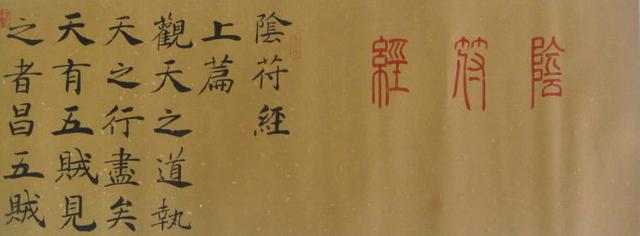 陰符經
陰符經
上篇
觀天之道執
天之行盡矣
天有五賊見
之者昌五賊